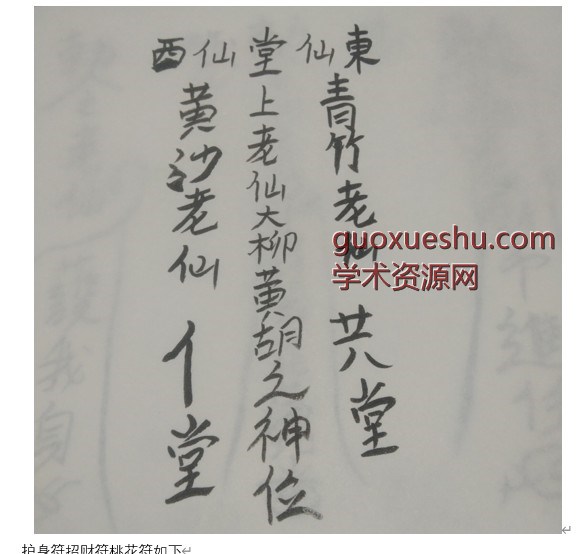 東仙堂仙西
青竹老仙 廿八堂
上老仙大柳黄胡之神位
黄沙老仙 堂
guoxueshu.com
学术资源网
护身符招财符桃花符如下